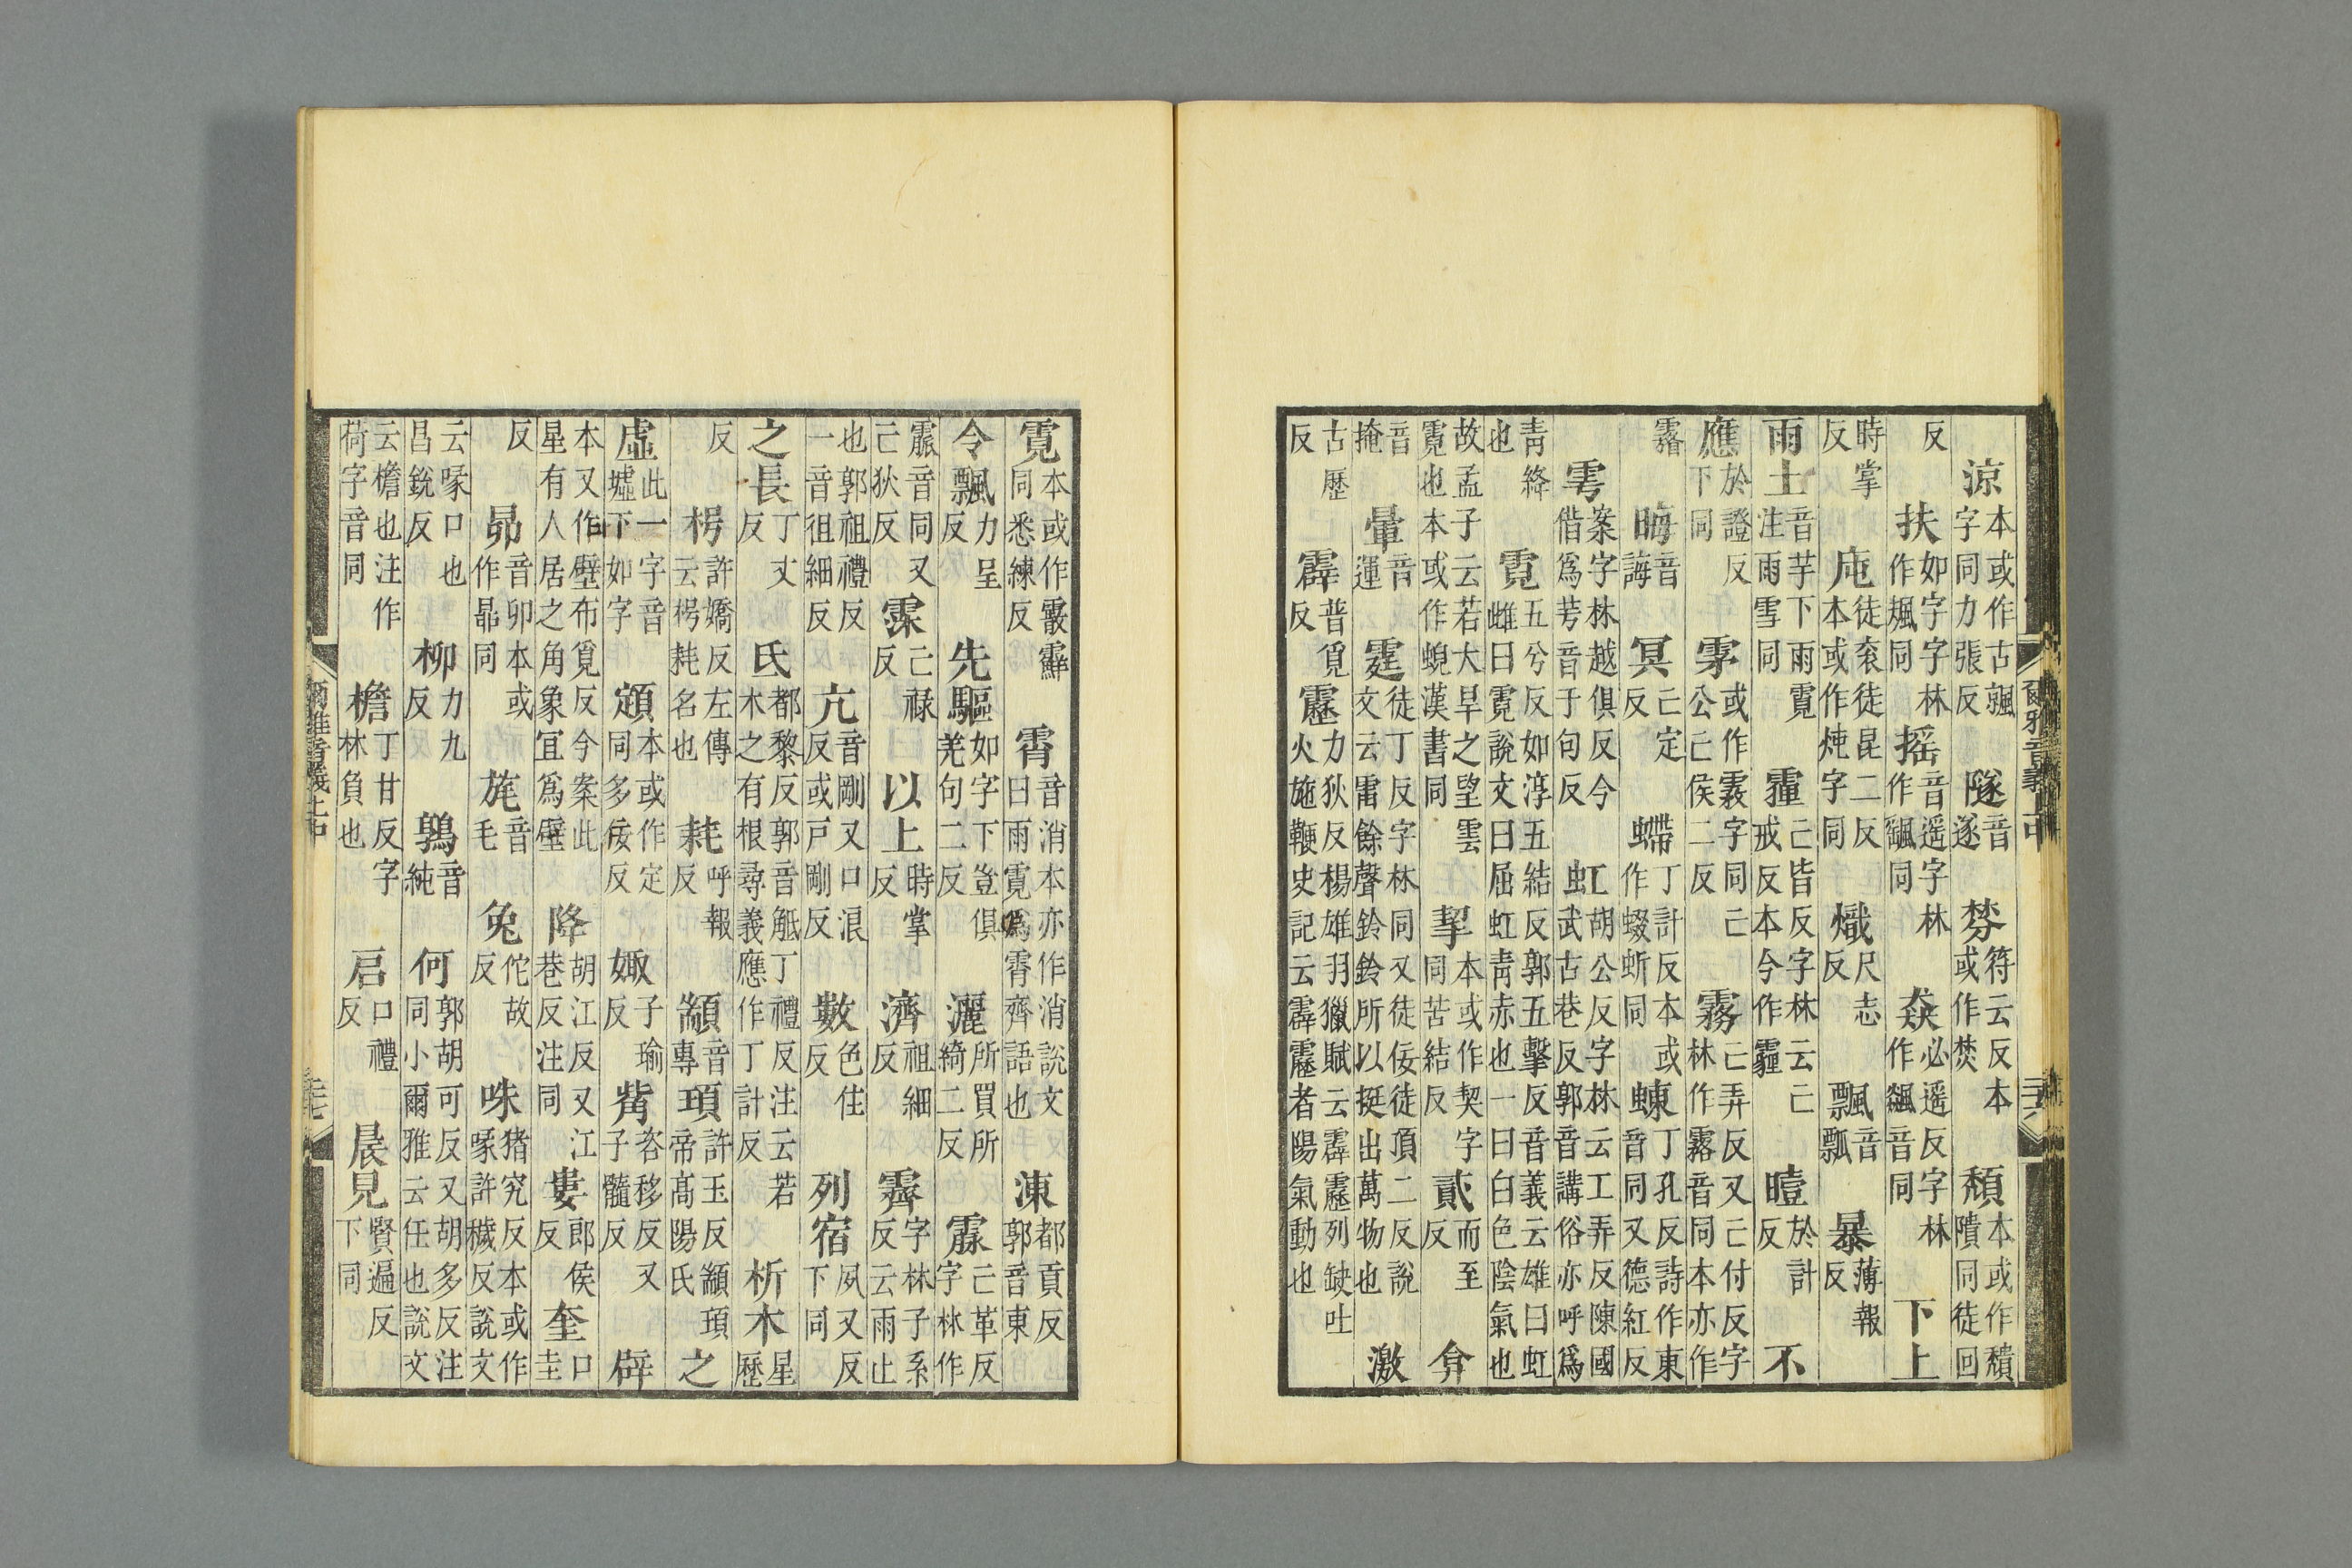 涼本或作古䬅字同力張反 隧音遂 棼符云反本或作焚 頹本或作穨隤同徒回
反 扶如字字林作颫同 摇音遥字林作䬙同 猋必遥反字林作飆音同 下上
時掌反 庉徒衮徒昆二反本或作炖字同 熾尺志反 飄音瓢 暴薄報反
雨土音芋下雨霓注雨雪同 霾亡皆反字林云亡戒反本今作霾 曀於計反 不
應於證反下同 雺或作霧字同亡公亡侯二反 霧亡弄反又亡付反字林作霧音同本亦作
霿 晦音誨 冥亡定反 螮丁計反本或作蝃蚚同 蝀丁孔反詩作東音同又德紅反
雩案字林越俱反今借爲芌音于句反 虹胡公反字林云工弄反陳國武古巷反郭音講俗亦呼爲
青絳也 霓五兮反如淳五結反郭五擊反音義云雄曰虹雌曰霓說文曰屈虹青赤也一曰白色陰氣也
故孟子云若大旱之望雲霓也本或作蜺漢書同 挈本或作契字同苦結反 貳而至反 弇
音掩 暈音運 霆徒丁反字林同又徒佞徒頂二反說文云雷餘聲鈴鈴所以挺出萬物也 激
古歷反 霹普覓反 靂力狄反楊雄羽獵賦云霹靂列缺吐火施鞭史記云霹靂者陽氣動也
爾雅音義上中 二十六
霓本或作霰䨘同悉練反 霄音消本亦作消說文曰雨霓爲霄齊語也 涷都貢反郭音東
令飄力呈反 先驅如字下登俱羌句二反 灑所買所綺二反 霢亡革反字林作
霡音同又亡狄反 霂亡祿反 以上時掌反 濟祖細反 霽字林子系反云雨止
也郭祖禮反一音徂細反 亢音剛又口浪反或戶剛反 數色住反 列宿夙又反下同
之長丁丈反 氐都黎反郭音觝丁禮反注云若木之有根尋義應作丁計反 析木星歷
反 枵許嬌反左傳云枵耗名也 耗呼報反 顓音專 頊許玉反顓頊帝高陽氏 之
虛此一字音墟下如字 顁本或作定同多佞反 娵子瑜反 觜咨移反又子髓反 壁
本又作壁布覓反今案此星有人居之角象宜爲壁 降胡江反又江巷反注同 婁郎侯反 奎口圭
反 昴音卯本或作㫕同 旄音毛 兔佗故反 咮猪究反本或作喙許穢反說文
云喙口也昌銳反 柳力九反 鶉音純 何郭胡可反又胡多反注同小爾雅云任也說文
云檐也注作荷字音同 檐丁甘反字林負也 启口禮反 晨見賢遍反下同
爾雅音義上中 二十七